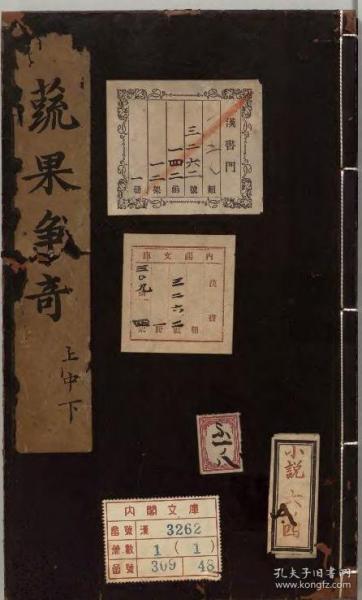 蔬果争奇
上中下
漢書門
類
三二六二號
一四二函
一二架
一冊
内閣文庫
漢書
三二六二號
三〇九
内閣文庫
番號 漢 3262
冊數 1(1)
函號 309 48
小説
孔夫子旧书网
www.kongfz.com